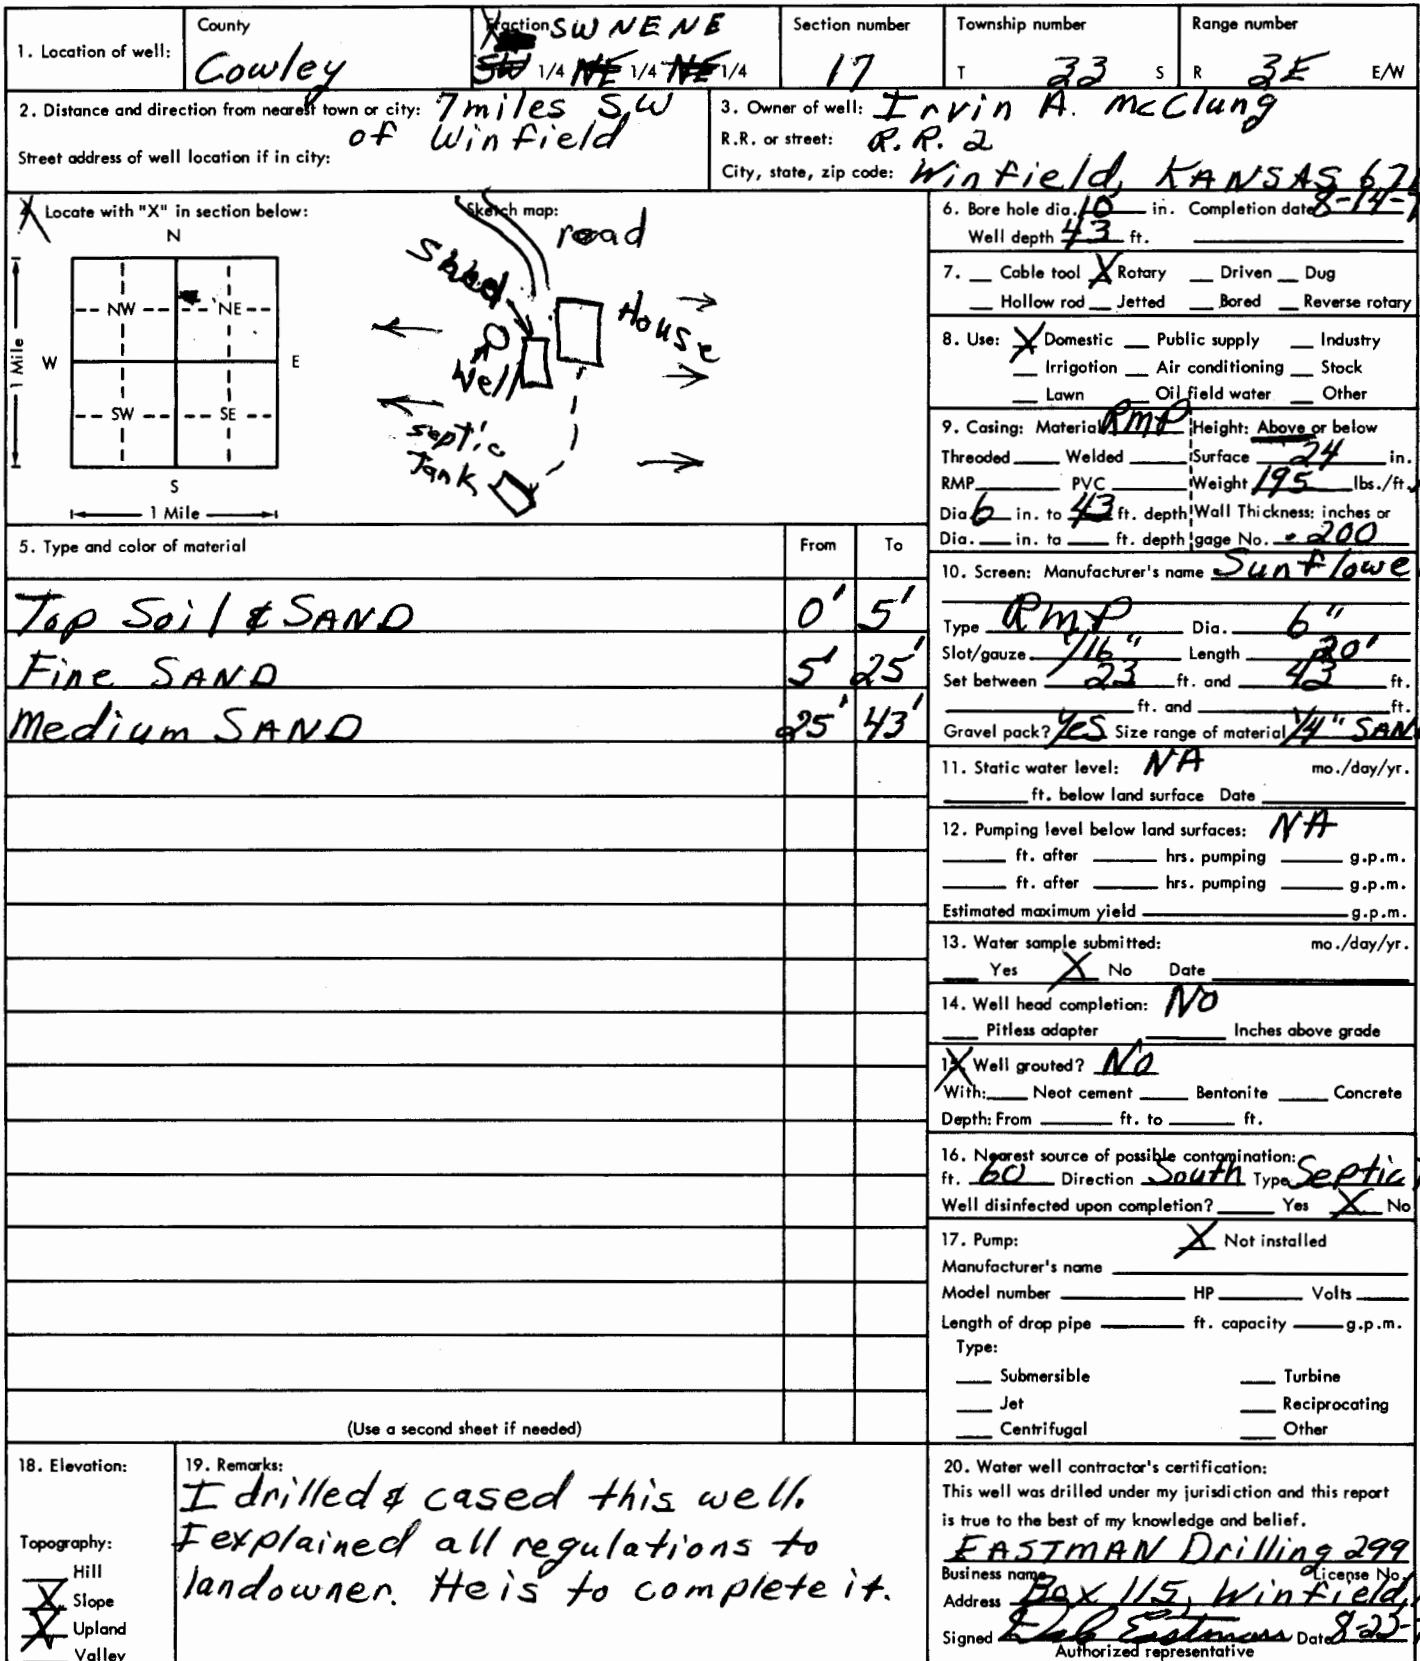 County Fraction SW NE NE Section number Township number Range number
1. Location of well: Cowley SW 1/4 NE 1/4 NE 1/4 17 T 33 S R 3E E/W
2. Distance and direction from nearest town or city: 7 miles SW
of Winfield
Street address of well location if in city:
3. Owner of well: Irvin A. McClung
R.R. or street: R.R. 2
City, state, zip code: Winfield, KANSAS 671
4. Locate with "X" in section below:
N
NW NE
W E
SW SE
S
1 Mile
1 Mile
Sketch map:
road
Shed
House
Well
septic
Tank
6. Bore hole dia. 10 in. Completion date 8-14-
Well depth 43 ft.
7. __ Cable tool X Rotary __ Driven __ Dug
__ Hollow rod __ Jetted __ Bored __ Reverse rotary
8. Use: X Domestic __ Public supply __ Industry
__ Irrigation __ Air conditioning __ Stock
__ Lawn __ Oil field water __ Other
9. Casing: Material RMP Height: Above or below
Threaded ____ Welded ____ Surface 24 in.
RMP ____ PVC ____ Weight 195 lbs./ft.
Dia. 6 in. to 43 ft. depth Wall Thickness: inches or
Dia. __ in. to __ ft. depth gage No. .200
5. Type and color of material From To
Top Soil & SAND 0' 5'
Fine SAND 5' 25'
Medium SAND 25' 43'
(Use a second sheet if needed)
10. Screen: Manufacturer's name Sunflowe
Type RMP Dia. 6"
Slot/gauze 1/16" Length 20'
Set between 23 ft. and 43 ft.
____ ft. and ____ ft.
Gravel pack? Yes Size range of material 1/4" SAN
11. Static water level: NA mo./day/yr.
____ ft. below land surface Date ____
12. Pumping level below land surfaces: NA
____ ft. after ____ hrs. pumping ____ g.p.m.
____ ft. after ____ hrs. pumping ____ g.p.m.
Estimated maximum yield ____ g.p.m.
13. Water sample submitted: mo./day/yr.
__ Yes X No Date ____
14. Well head completion: NO
__ Pitless adapter ____ Inches above grade
15. Well grouted? No
With: __ Neat cement __ Bentonite __ Concrete
Depth: From ____ ft. to ____ ft.
16. Nearest source of possible contamination:
ft. 60 Direction South Type Septic
Well disinfected upon completion? __ Yes X No
17. Pump: X Not installed
Manufacturer's name ____
Model number ____ HP ____ Volts ____
Length of drop pipe ____ ft. capacity ____ g.p.m.
Type:
__ Submersible __ Turbine
__ Jet __ Reciprocating
__ Centrifugal __ Other
18. Elevation:
Topography:
__ Hill
X Slope
X Upland
Valley
19. Remarks:
I drilled & cased this well.
I explained all regulations to
landowner. He is to complete it.
20. Water well contractor's certification:
This well was drilled under my jurisdiction and this report
is true to the best of my knowledge and belief.
EASTMAN Drilling 299
Business name License No.
Address Box 115, Winfield,
Signed Eastman Date 8-23-
Authorized representative